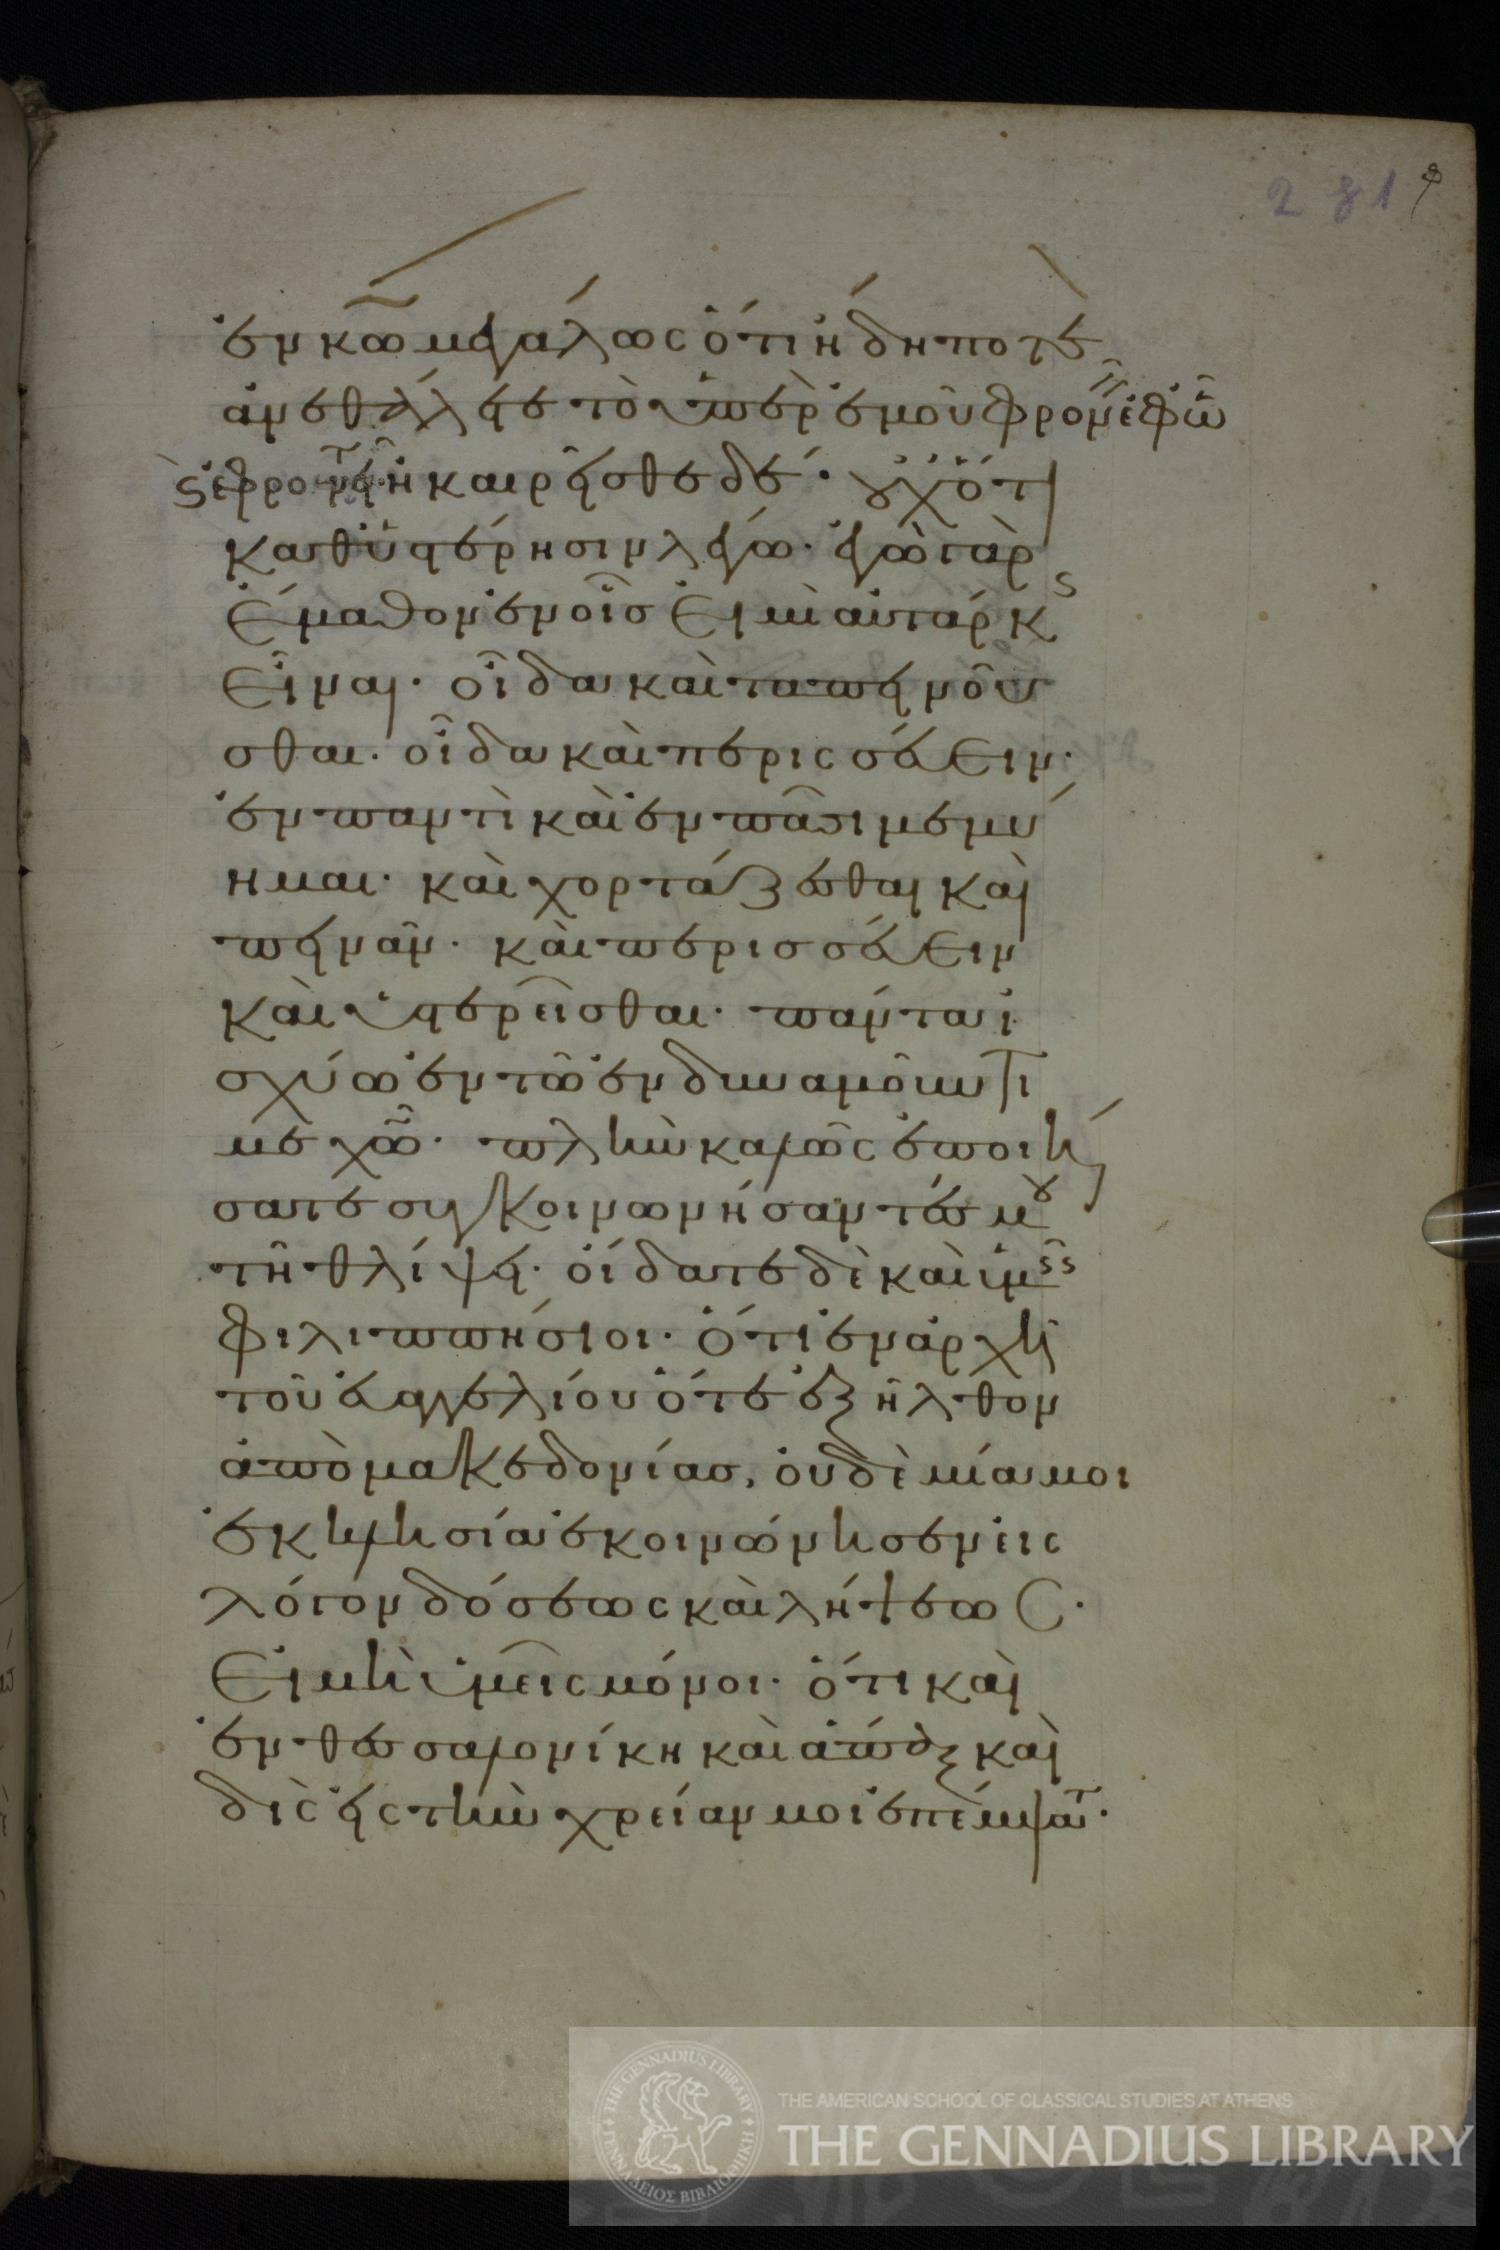 281
ἐν κ͞ω μεγάλως ὅτι ἤδη ποτὲ
ἀνεθάλετε τὸ ὑπὲρ ἐμοῦ φρονεῖν ἐφ ὧ
κ ἐφρονεῖτε ἠκαιρεῖσθε δέ· οὐχ ὅτι
καθ ὑστέρησιν λέγω· ἐγὼ γὰρ
ἔμαθον ἐν οἷς εἰμὶ αὐτάρκης
εἶναι· οἶδα καὶ ταπεινοῦ
σθαι· οἶδα καὶ περισσεύειν·
ἐν παντὶ καὶ ἐν πᾶσι μεμύ
ημαι· καὶ χορτάζεσθαι καὶ
πεινᾶν· καὶ περισσεύειν
καὶ ὑστερεῖσθαι· πάντα ἰ
σχύω ἐν τῶ ἐνδυναμοῦντι
με χ͞ω· πλὴν καλῶς ἐποιή
σατε συγκοινωνήσαντές μου
τῆ θλίψει· οἴδατε δὲ καὶ ὑμεῖς
φιλιππήσιοι· ὅτι ἐν ἀρχῆ
τοῦ εὐαγγελίου ὅτε ἐξῆλθον
ἀπὸ μακεδονίας, οὐδὲ μία μοι
ἐκκλησία ἐκοινώνησεν εἰς
λόγον δόσεως καὶ λήψεως·
εἰ μὴ ὑμεῖς μόνοι· ὅτι καὶ
ἐν θεσσαλονίκη καὶ ἅπαξ καὶ
δὶς εἰς τὴν χρείαν μοι ἐπέμψατε·
THE AMERICAN SCHOOL OF CLASSICAL STUDIES AT ATHENS
THE GENNADIUS LIBRARY
THE GENNADIUS LIBRARY
ΓΕΝΝΑΔΕΙΟΣ ΒΙΒΛΙΟΘΗΚΗ